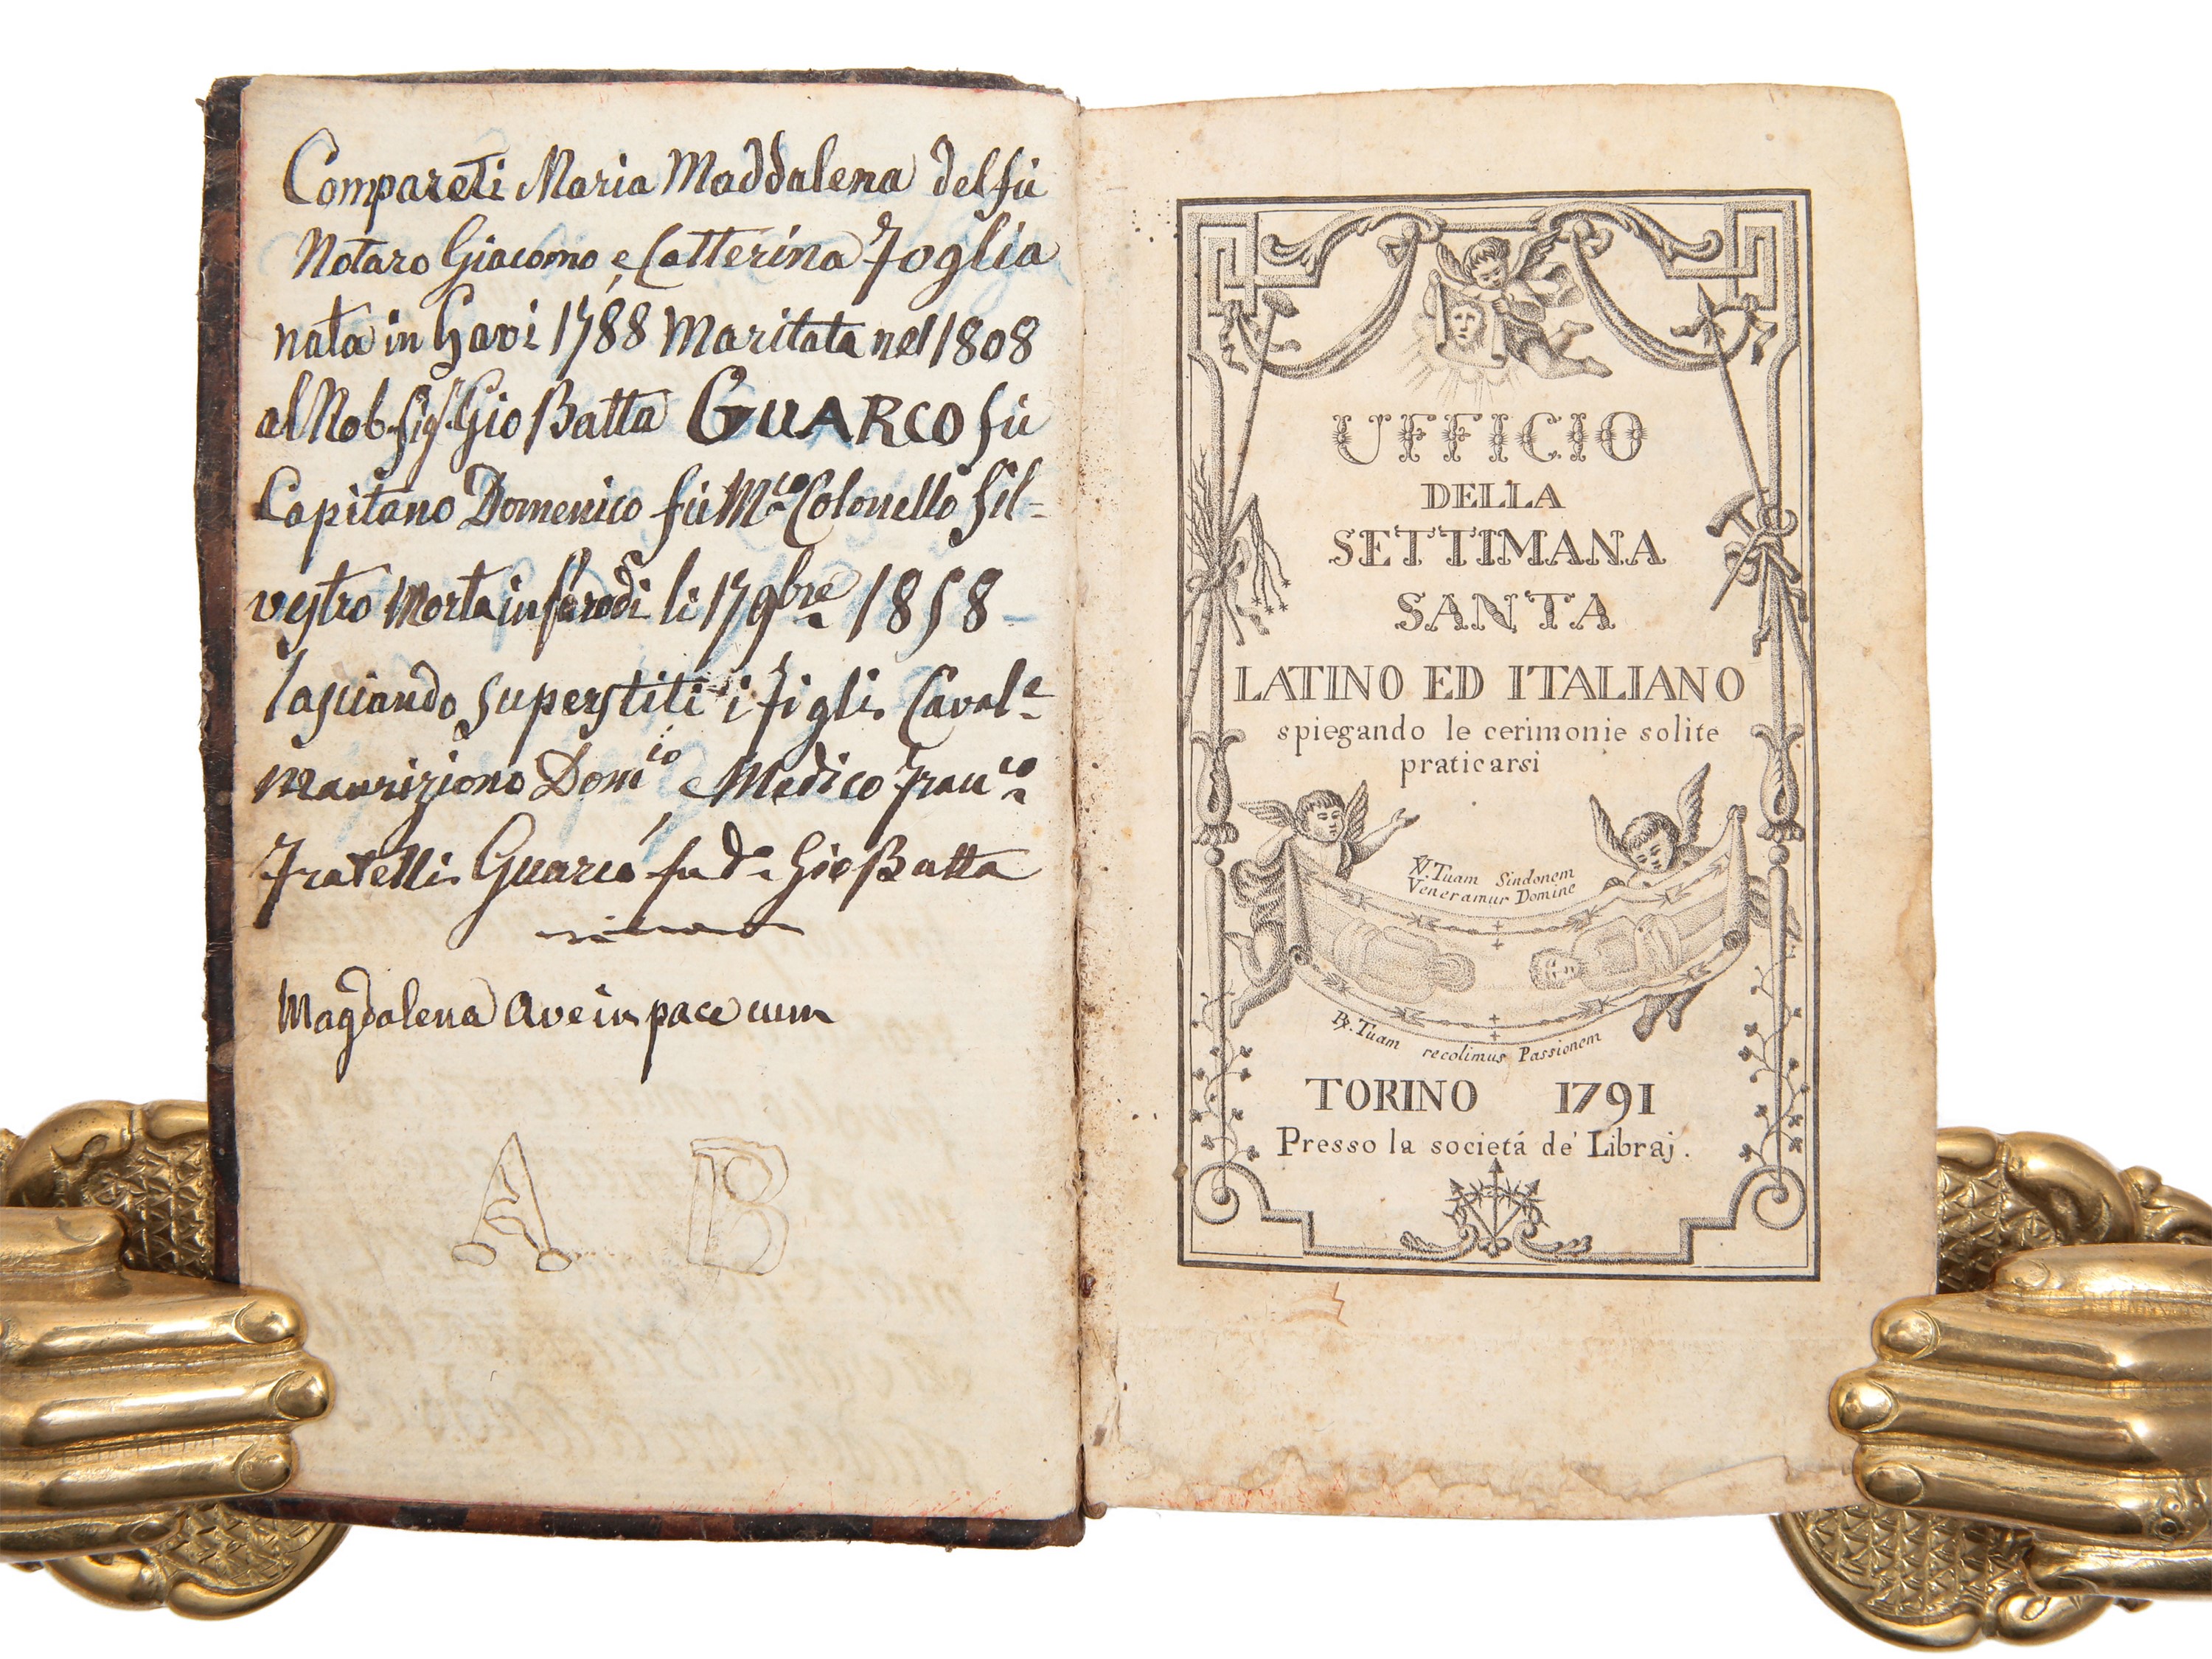 Compareti Maria Maddalena del fù
Notaro Giacomo, e Catterina Foglia
nata in Gavi 1788 Maritata nel 1808
al Nob. Sigr. Gio Batta GUARCO fù
Capitano Domenico fù Mco Colonello Sil-
vestro Morta in Parodi li 17 9bre 1858
lasciando superstiti i figli Cavale
Mauriziono Domco e Medico Franco
Fratelli Guarco fu do Gio Batta
Magdalena Ave in pace cum
A B
UFFICIO
DELLA
SETTIMANA
SANTA
LATINO ED ITALIANO
spiegando le cerimonie solite
praticarsi
℣. Tuam Sindonem
Veneramur Domine
℟. Tuam recolimus Passionem
TORINO 1791
Presso la societá de' Libraj.